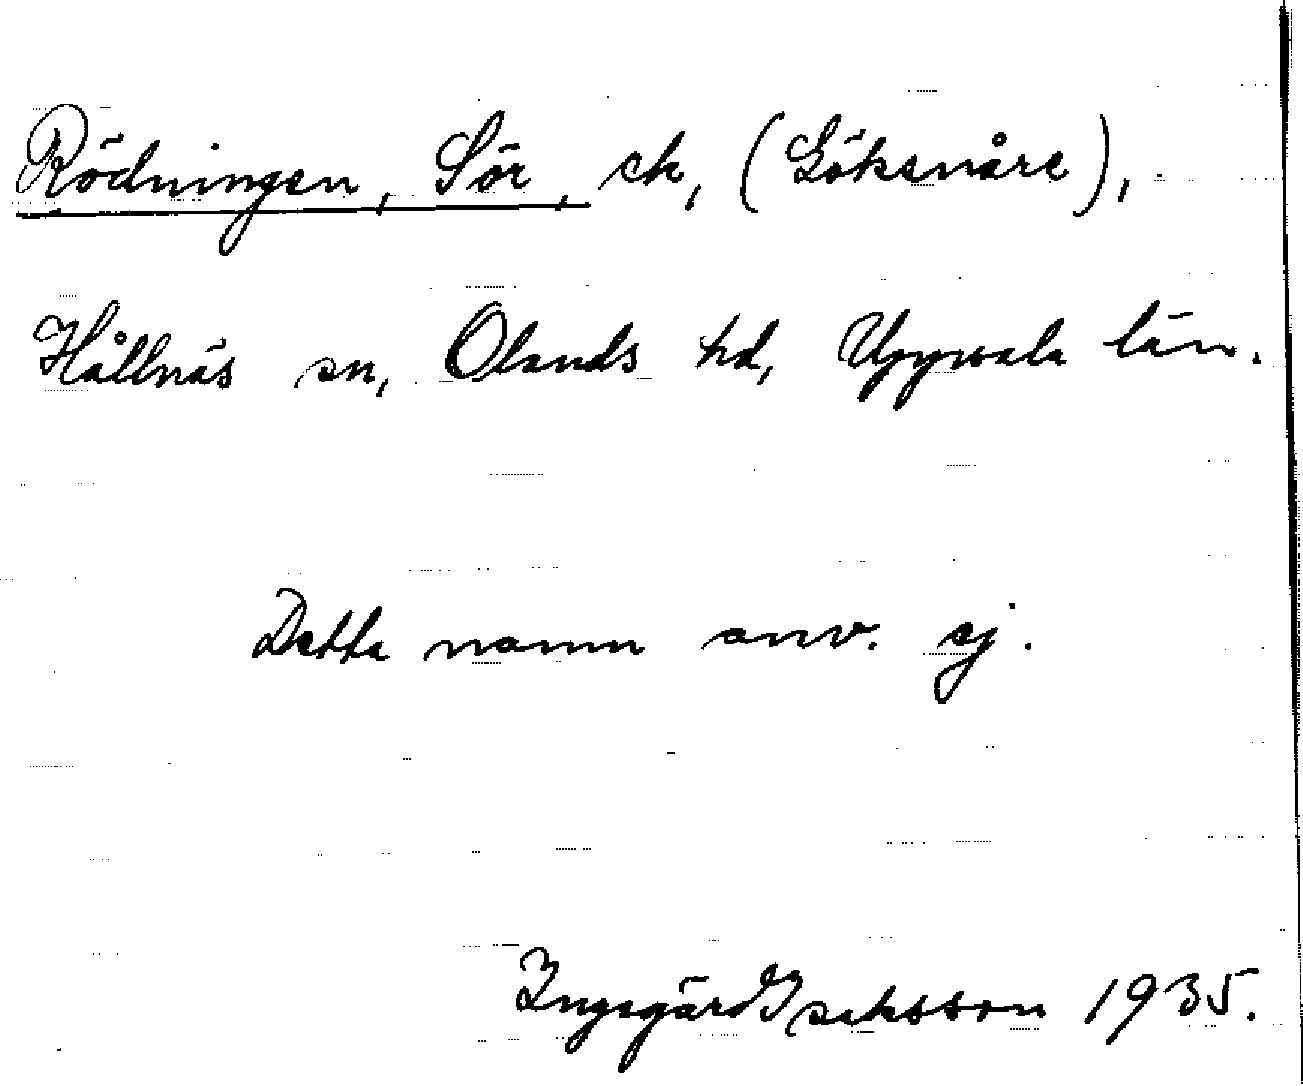 Rödningen, Sör, ek, (Göksnåre),
Hållnäs sn, Olands hd, Uppsala län.
Detta namn anv. ej.
Ingegärd Isaksson 1935.